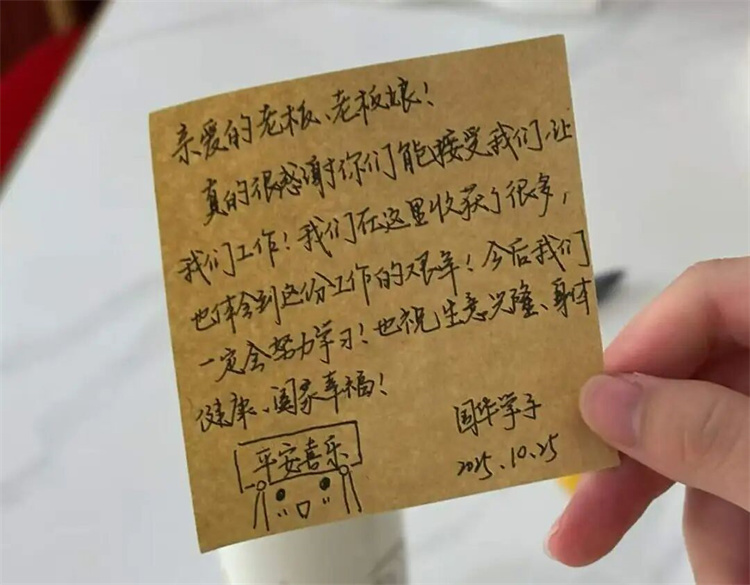 亲爱的老板、老板娘！
真的很感谢你们能接受我们,让
我们工作！我们在这里收获了很多，
也体会到这份工作的艰辛！今后我们
一定会努力学习！也祝生意兴隆、身体
健康、阖家幸福！
国华学子
2025.10.25
平安喜乐